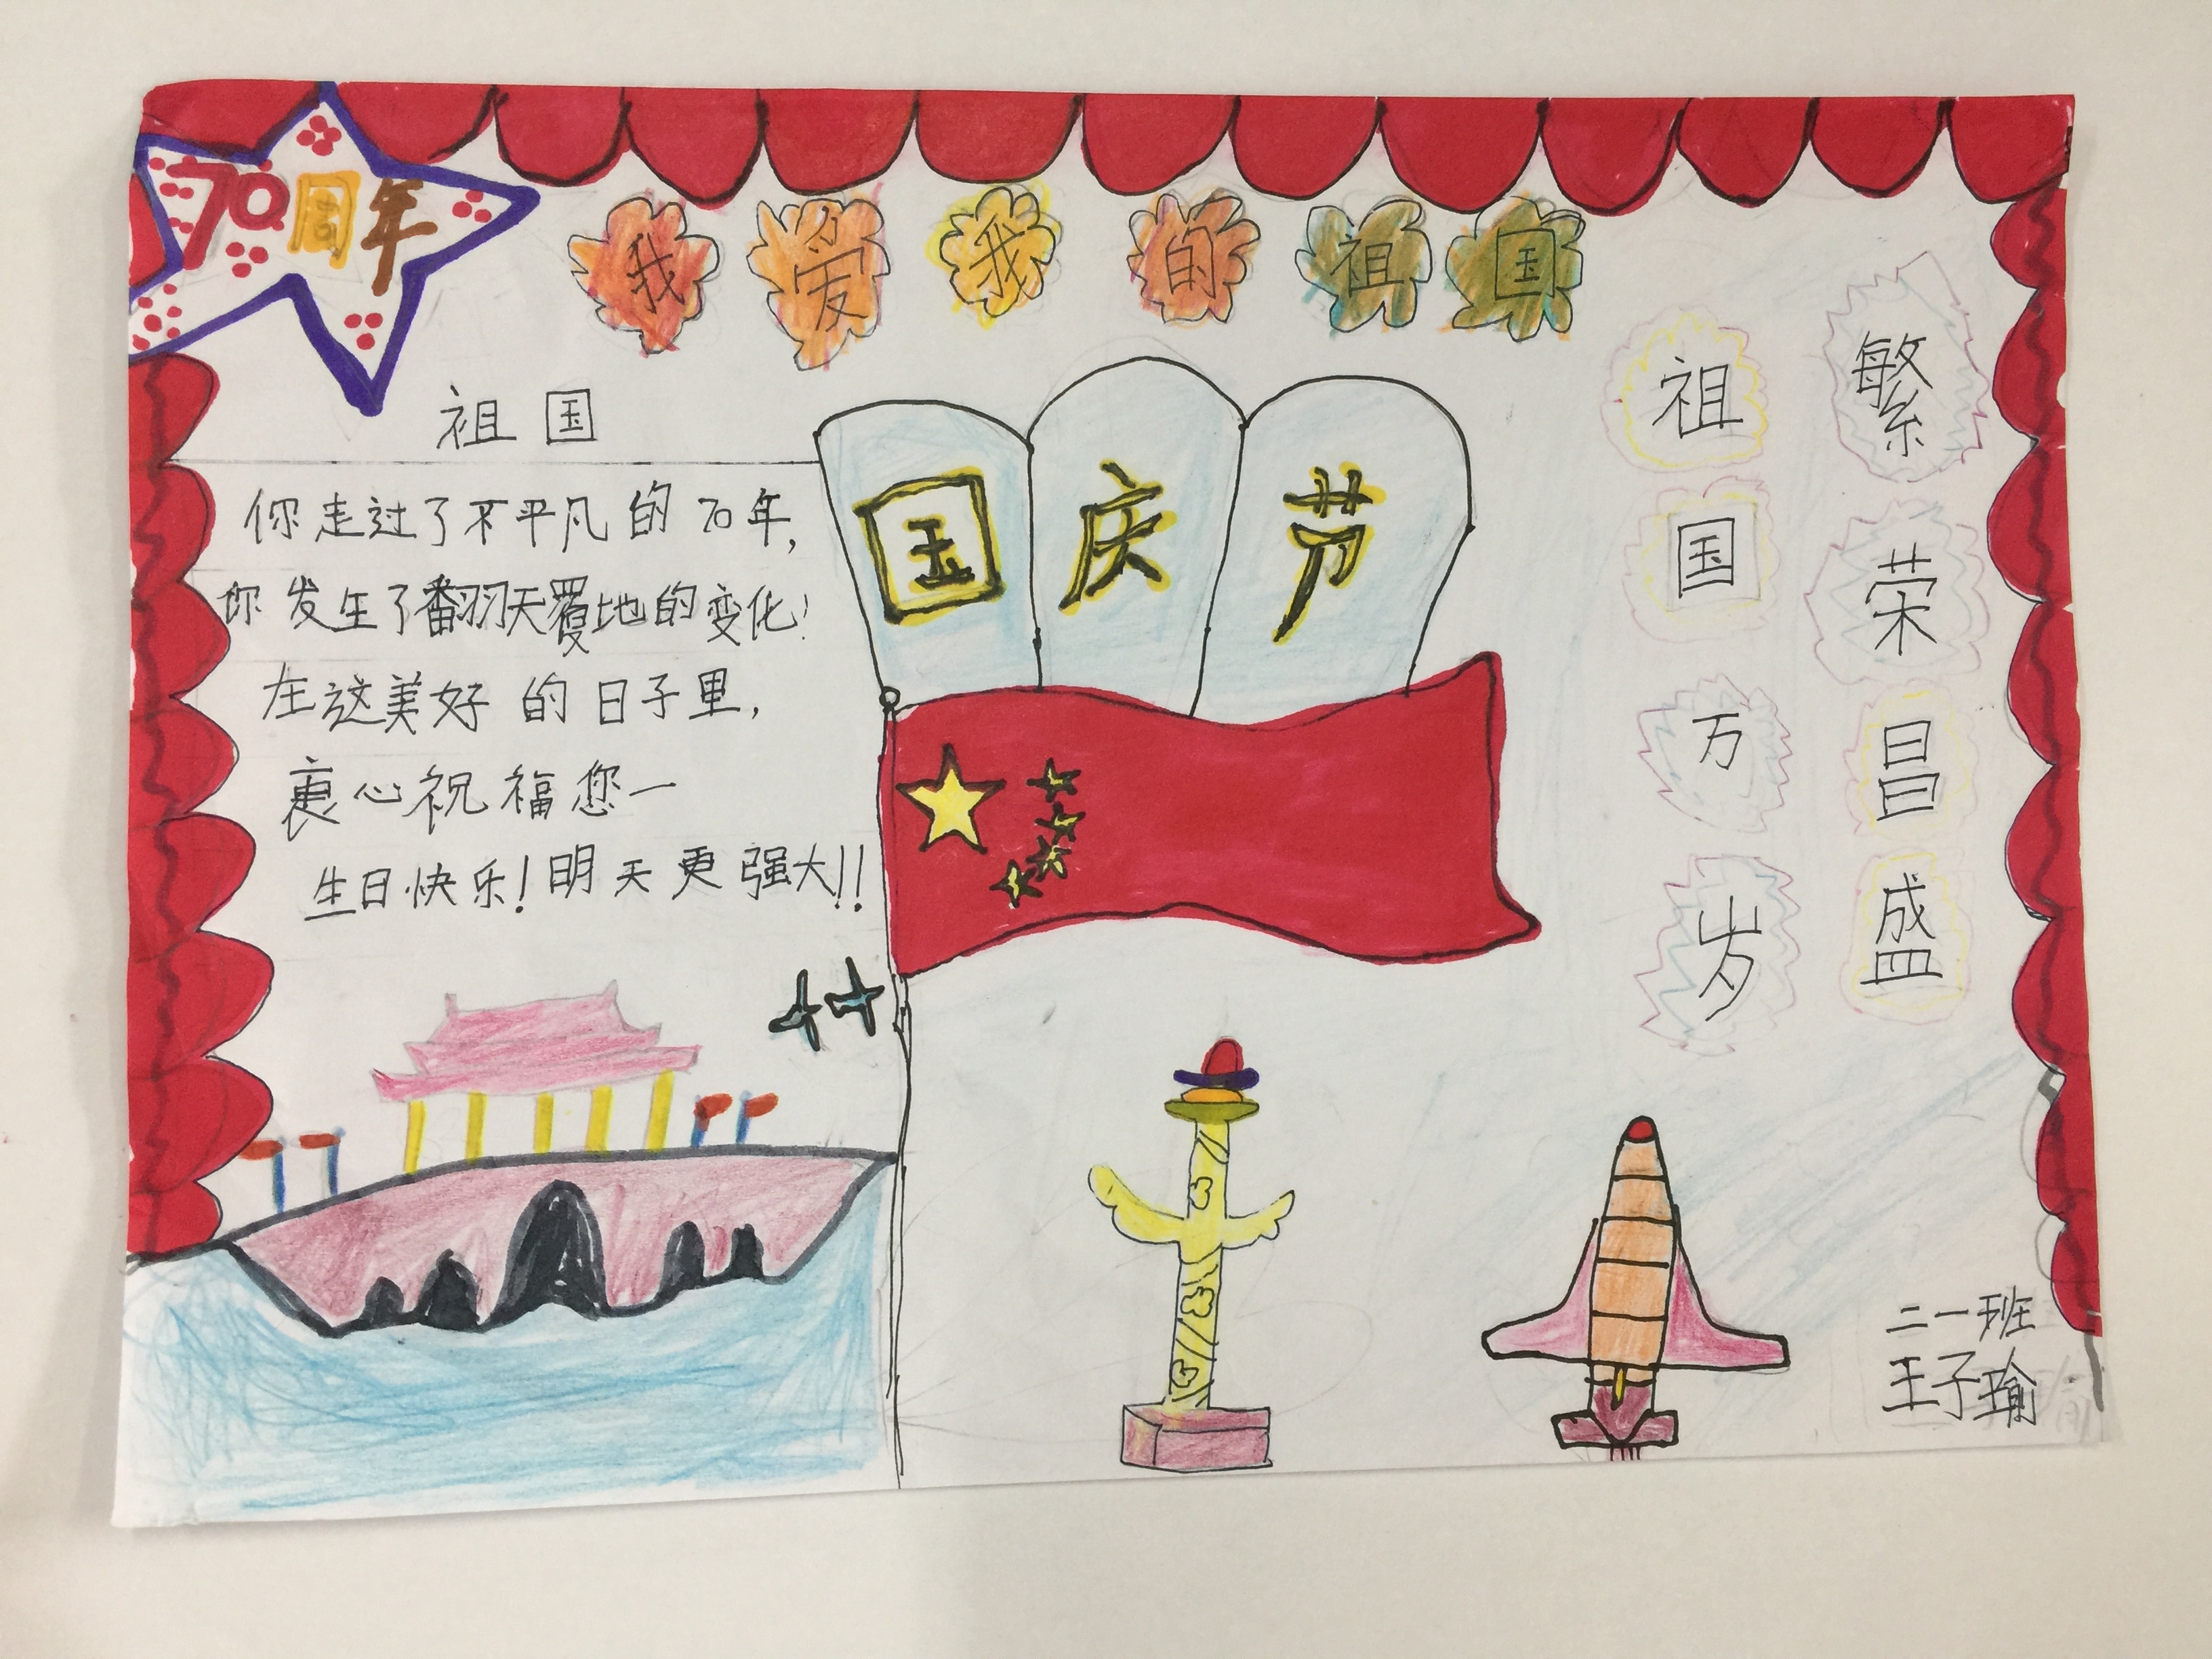 70周年
我爱我的祖国
祖国
你走过了不平凡的70年,
你发生了翻天覆地的变化!
在这美好的日子里,
衷心祝福您一
生日快乐!明天更强大!!
国庆节
繁荣昌盛
祖国万岁
二一班
王子瑜